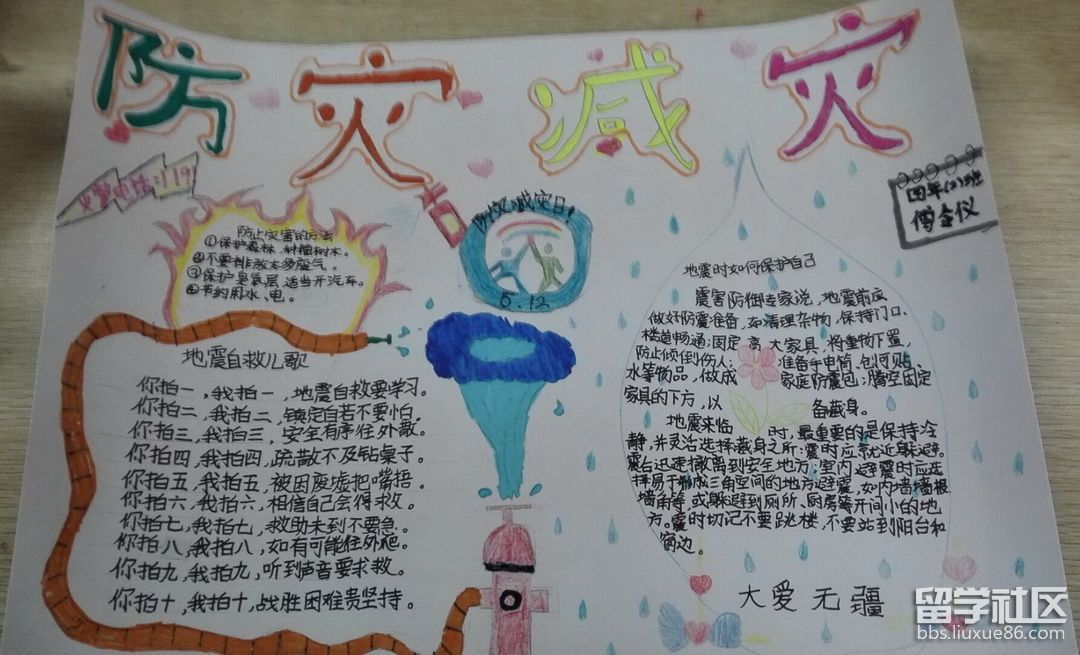 防灾减灾
火警电话:119
四年(2)班
傅全仪
防灾减灾日!
5.12
防止灾害的方法
①保护森林,种植树木。
②不要排放太多废气。
③保护臭氧层,适当开汽车。
④节约用水、电。
地震自救儿歌
你拍一,我拍一,地震自救要学习。
你拍二,我拍二,镇定自若不要怕。
你拍三,我拍三,安全有序往外散。
你拍四,我拍四,疏散不及钻桌子。
你拍五,我拍五,被困废墟把嘴捂。
你拍六,我拍六,相信自己会得救。
你拍七,我拍七,救助未到不要急。
你拍八,我拍八,如有可能往外爬。
你拍九,我拍九,听到声音要求救。
你拍十,我拍十,战胜困难贵坚持。
地震时如何保护自己
震害防御专家说,地震前应
做好防震准备,如清理杂物,保持门口、
楼道畅通;固定高大家具,将重物下置,
防止倾倒伤人;准备手电筒、创可贴
水等物品,做成家庭防震包;腾空固定
家具的下方,以备藏身。
地震来临时,最重要的是保持冷
静,并灵活选择藏身之所:震时应就近躲避。
震后迅速撤离到安全地方;室内避震时应选
择易于形成三角空间的地方避震,如内墙墙根、
墙角等,或躲避到厕所、厨房等开间小的地
方。震时切记不要跳楼,不要站到阳台和
窗边。
大爱无疆
留学社区
bbs.liuxue86.com